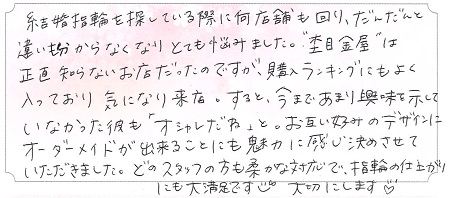 結婚指輪を探している際に何店舗も回り、だんだんと
違いも分からなくなりとても悩みました。"杢目金屋"は
正直知らないお店だったのですが、購入ランキングにもよく
入っており気になり来店。すると、今まであまり興味を示して
いなかった彼も「オシャレだね」と。お互い好みのデザインに
オーダーメイドが出来ることにも魅力に感じ決めさせて
いただきました。どのスタッフの方も柔かな対応で、指輪の仕上がり
にも大満足です♡ 大切にします♡